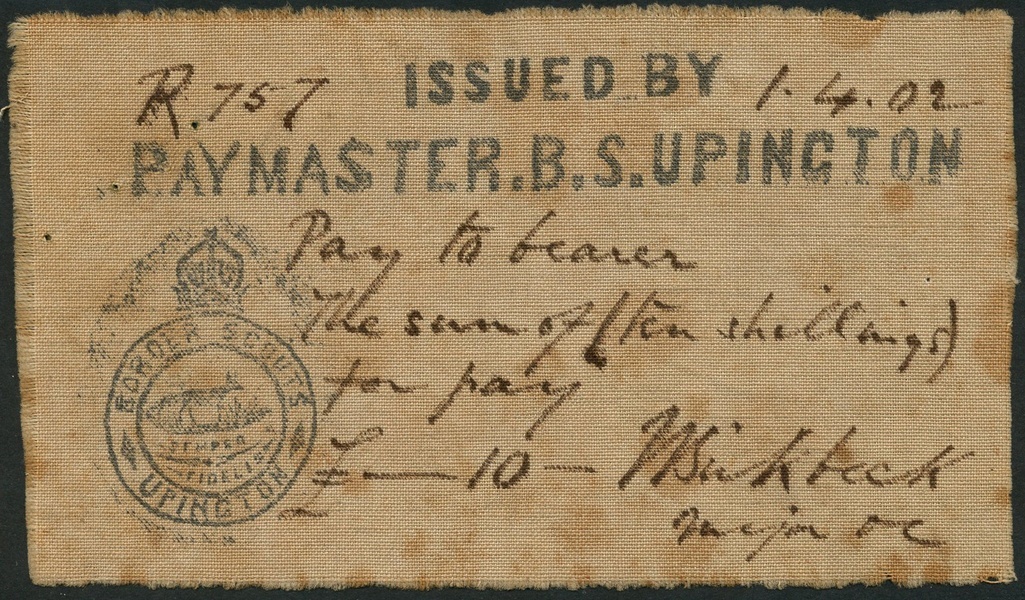 R. 757 ISSUED BY 1.4.02
PAYMASTER.B.S.UPINGTON
Pay to bearer
The sum of (ten shillings)
for pay
£ — 10 —
Birkbeck
Major OC
BORDER SCOUTS
SEMPER
FIDELIS
UPINGTON